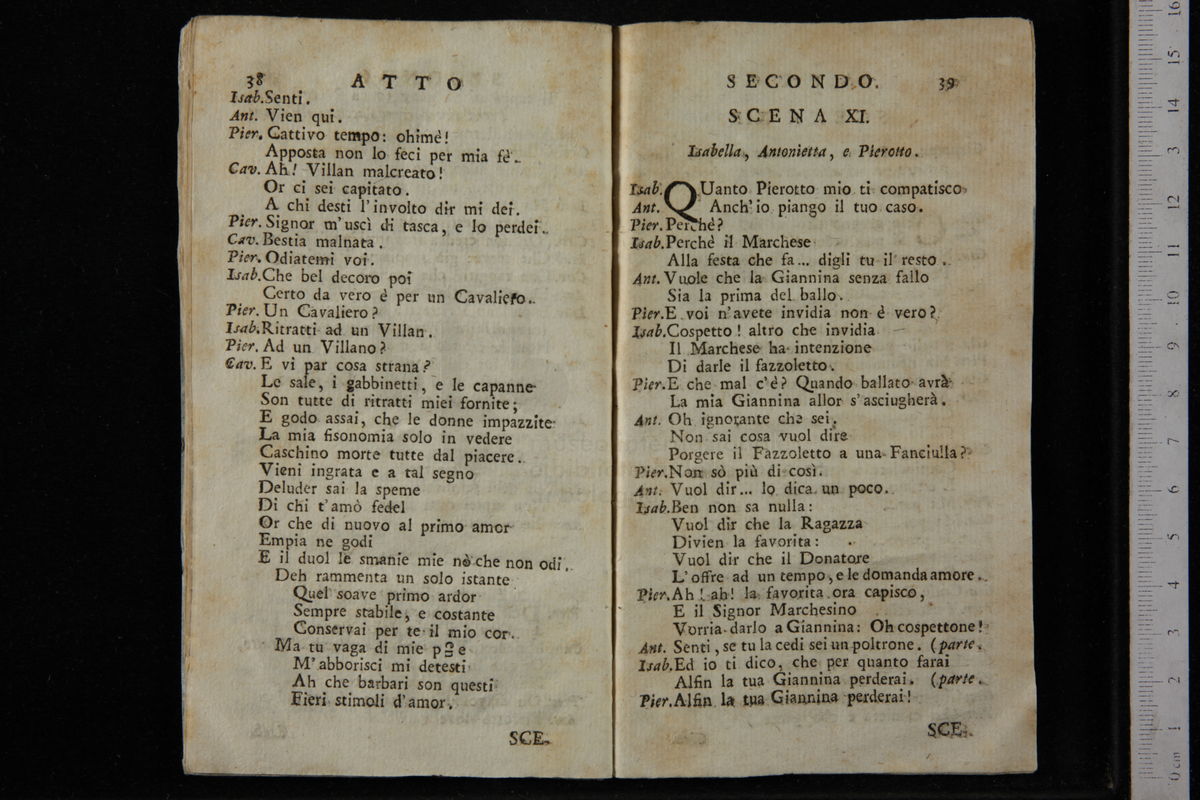 38 ATTO
Isab. Senti.
Ant. Vien qui.
Pier. Cattivo tempo: ohimè!
Apposta non lo feci per mia fè.
Cav. Ah! Villan malcreato!
Or ci sei capitato.
A chi desti l'involto dir mi dei.
Pier. Signor m'uscì di tasca, e lo perdei.
Cav. Bestia malnata.
Pier. Odiatemi voi.
Isab. Che bel decoro poi
Certo da vero è per un Cavaliero.
Pier. Un Cavaliero?
Isab. Ritratti ad un Villan.
Pier. Ad un Villano?
Cav. E vi par cosa strana?
Le sale, i gabbinetti, e le capanne
Son tutte di ritratti miei fornite;
E godo assai, che le donne impazzite
La mia fisonomia solo in vedere
Caschino morte tutte dal piacere.
Vieni ingrata e a tal segno
Deluder sai la speme
Di chi t'amò fedel
Or che di nuovo al primo amor
Empia ne godi
E il duol le smanie mie nò che non odi.
Deh rammenta un solo istante
Quel soave primo ardor
Sempre stabile, e costante
Conservai per te il mio cor.
Ma tu vaga di mie
M'abborisci mi detesti
Ah che barbari son questi
Fieri stimoli d'amor.
SCE-
SECONDO. 39
SCENA XI.
Isabella, Antonietta, e Pierotto.
Isab. QUanto Pierotto mio ti compatisco
Ant. Anch'io piango il tuo caso.
Pier. Perchè?
Isab. Perchè il Marchese
Alla festa che fa... digli tu il resto.
Ant. Vuole che la Giannina senza fallo
Sia la prima del ballo.
Pier. E voi n'avete invidia non è vero?
Isab. Cospetto! altro che invidia
Il Marchese ha intenzione
Di darle il fazzoletto.
Pier. E che mal c'è? Quando ballato avrà
La mia Giannina allor s'asciugherà.
Ant. Oh ignorante che sei.
Non sai cosa vuol dire
Porgere il Fazzoletto a una Fanciulla?
Pier. Non sò più di così.
Ant. Vuol dir... lo dica un poco.
Isab. Ben non sa nulla:
Vuol dir che la Ragazza
Divien la favorita:
Vuol dir che il Donatore
L'offre ad un tempo, e le domanda amore.
Pier. Ah! ah! la favorita ora capisco,
E il Signor Marchesino
Vorria darlo a Giannina: Oh cospettone!
Ant. Senti, se tu la cedi sei un poltrone. (parte.
Isab. Ed io ti dico, che per quanto farai
Alfin la tua Giannina perderai. (parte.
Pier. Alfin la tua Giannina perderai!
SCE-
0 cm 1 2 3 4 5 6 7 8 9 10 11 12 3 14 15 16